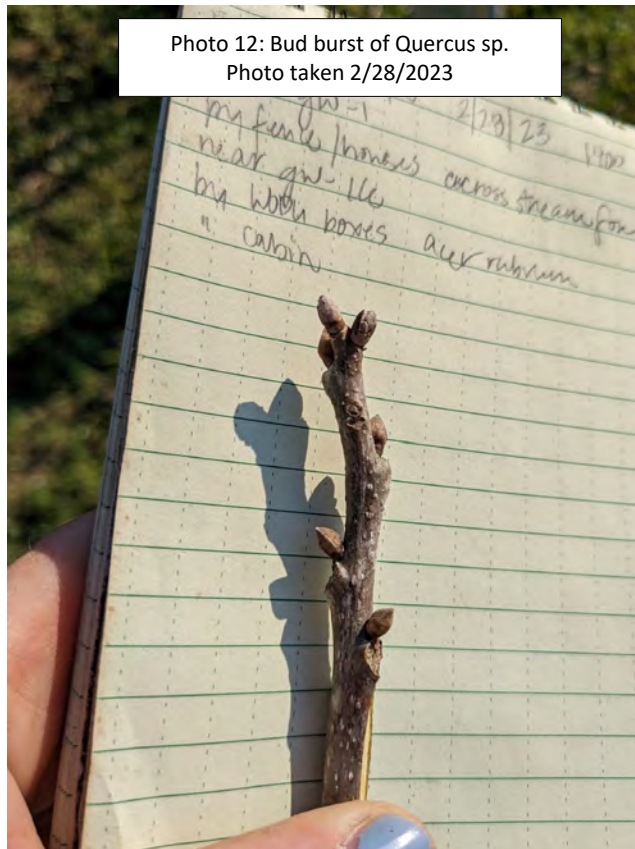 Photo 12: Bud burst of Quercus sp.
Photo taken 2/28/2023
gw-1 2/28/23 1400
by fence/houses across stream from
near gw-
by boxes acer rubrum
" cabin